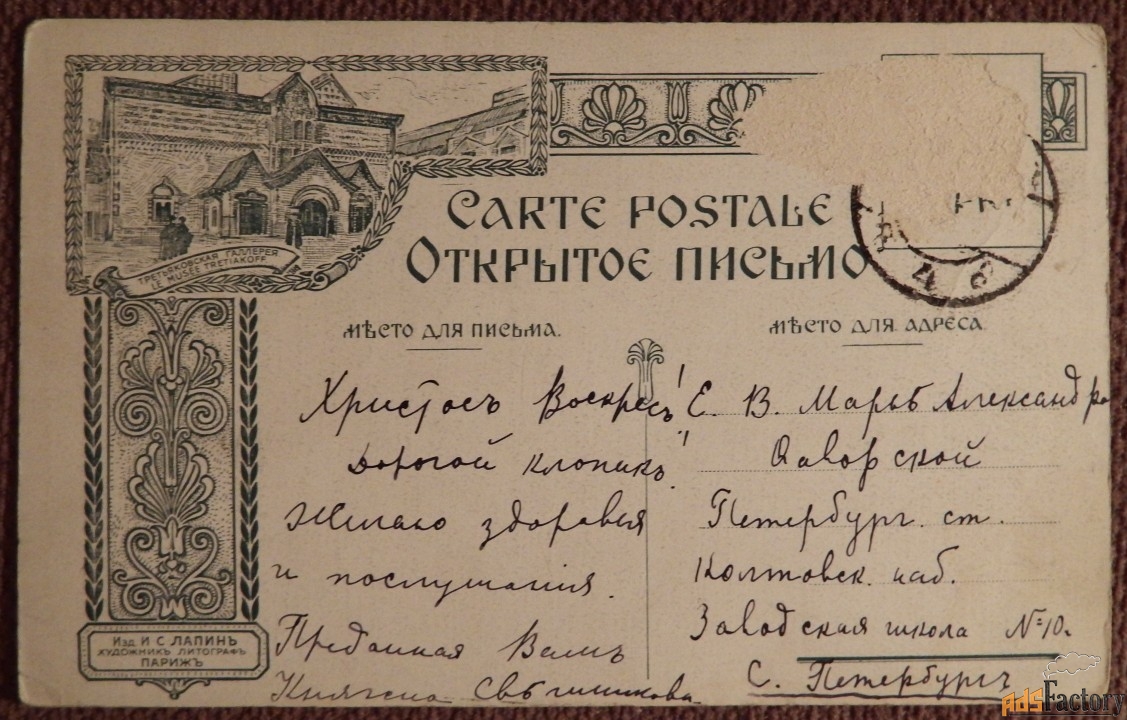 ТРЕТЬЯКОВСКАЯ ГАЛЛЕРЕЯ
LE MUSÉE TRETIAKOFF
CARTE POSTALE
ОТКРЫТОЕ ПИСЬМО
МѢСТО ДЛЯ ПИСЬМА.
МѢСТО ДЛЯ АДРЕСА.
Христосъ Воскресъ!
дорогой клопикъ!
Желаю здоровья
и послушанія.
Преданная Вамъ
Княгиня
Е. В. Марьѣ Александр
ской
Петербург. ст.
Колтовск. наб.
Заводская школа №10.
С. Петербургъ
Изд. И С ЛАПИНЪ
ХУДОЖНИКЪ ЛИТОГРАФЪ
ПАРИЖЪ
AdsFactory